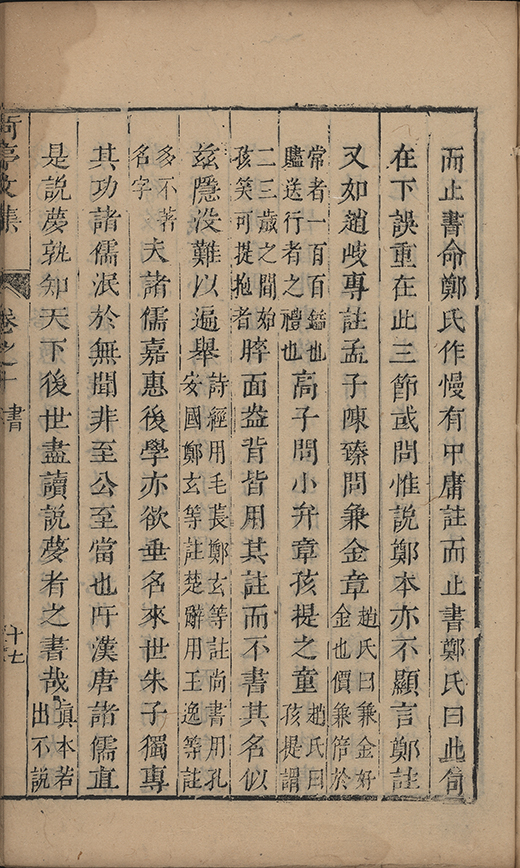 而止書命鄭氏作慢有中庸註而止書鄭氏曰此句
在下誤重在此三節或問惟說鄭本亦不顯言鄭註
又如趙歧專註孟子陳臻問兼金章
趙氏曰兼金好
金也價兼倍於
常者一百百鎰也
贐送行者之禮也
高子問小弁章孩提之童
趙氏曰
孩提謂
二三歲之間始
孩笑可提抱者
睟面盎背皆用其註而不書其名似
茲隱没難以遍舉
詩經用毛萇鄭玄等註尚書用孔
安國鄭玄等註楚辭用王逸等註
多不著
名字
夫諸儒嘉惠後學亦欲垂名來世朱子獨專
其功諸儒泯於無聞非至公至當也吁漢唐諸儒直
是説夢孰知天下後世盡讀說夢者之書哉
眞本若
出不説
亭文集
卷之十
書
十七